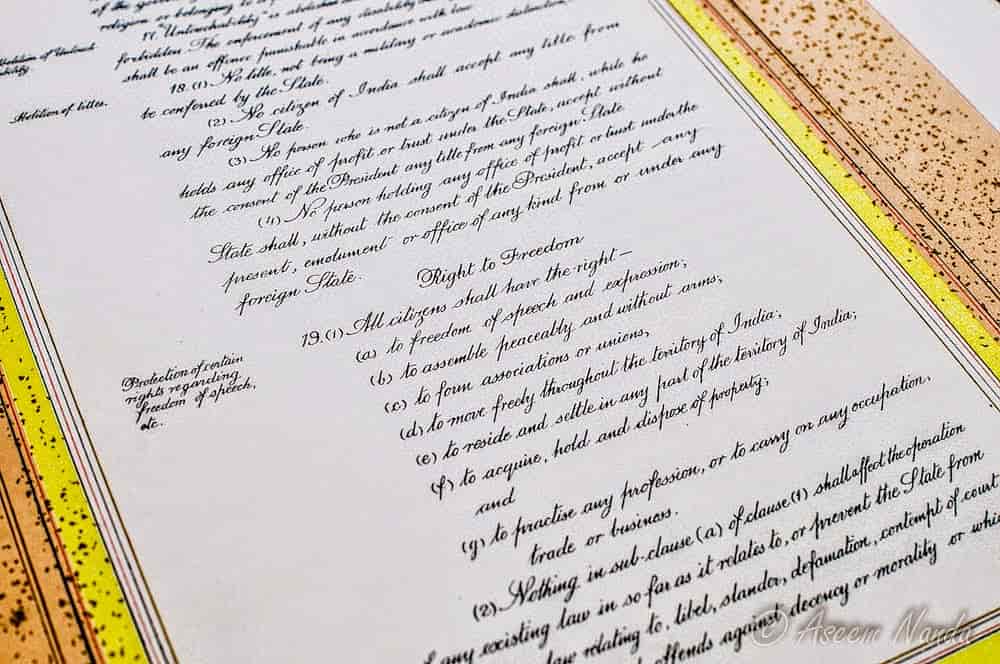 religion or belonging to a
17. "Untouchability" is abolished
Abolition of Untouch-
ability.
forbidden. The enforcement of any disability
shall be an offence punishable in accordance with law.
Abolition of titles.
18. (1) No title, not being a military or academic distinction,
be conferred by the State.
(2) No citizen of India shall accept any title from
any foreign State.
(3) No person who is not a citizen of India shall, while he
holds any office of profit or trust under the State, accept without
the consent of the President any title from any foreign State.
(4) No person holding any office of profit or trust under the
State shall, without the consent of the President, accept any
present, emolument or office of any kind from or under any
foreign State.
Right to Freedom
Protection of certain
rights regarding
freedom of speech,
etc.
19. (1) All citizens shall have the right—
(a) to freedom of speech and expression;
(b) to assemble peaceably and without arms;
(c) to form associations or unions;
(d) to move freely throughout the territory of India;
(e) to reside and settle in any part of the territory of India;
(f) to acquire, hold and dispose of property;
and
(g) to practise any profession, or to carry on any occupation,
trade or business.
(2) Nothing in sub-clause (a) of clause (1) shall affect the operation
of any existing law in so far as it relates to, or prevent the State from
law relating to, libel, slander, defamation, contempt of court
offends against decency or morality or whi
© Aseem Nanda